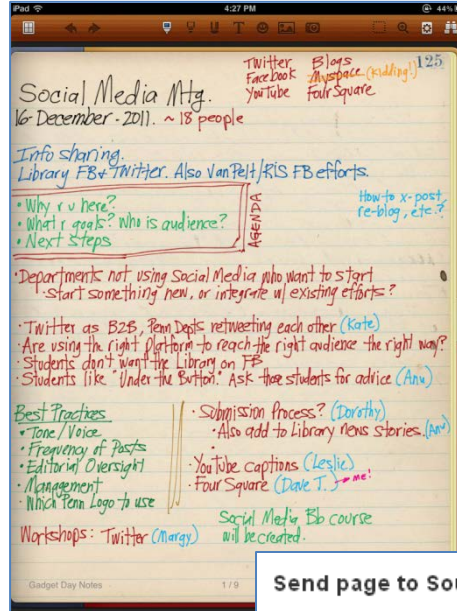 iPad 4:27 PM 44%
125
Twitter Blogs
Facebook Myspace (Kidding!)
YouTube FourSquare
Social Media Mtg.
16-December-2011. ~ 18 people
Info sharing.
Library FB & Twitter. Also VanPelt/RIS FB efforts.
• Why r u here?
• What r goals? Who is audience?
• Next steps
AGENDA
How to x-post,
re-blog, etc.?
• Departments not using Social Media who want to start
• Start something new, or integrate w/ existing efforts?
• Twitter as B2B, Penn Depts retweeting each other (Kate)
• Are using the right Platform to reach the right audience the right way?
• Students don't want the Library on FB
• Students like "Under the Button." Ask those students for advice (Anu)
Best Practices
• Tone/Voice
• Frequency of Posts
• Editorial Oversight
• Management
• Which Penn Logo to use
• Submission Process? (Dorothy)
• Also add to Library news stories. (Anu)
• YouTube captions (Leslie)
• Four Square (Dave T.) → me!
Workshops: Twitter (Margy)
Social Media Bb course
will be created.
Gadget Day Notes
1/9
Send page to